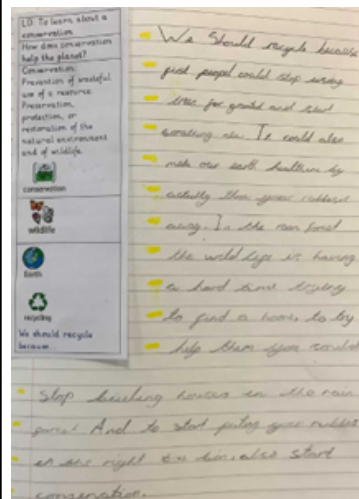 LO: To learn about a
conservation.
How does conservation
help the planet?
Conservation:
Prevention of wasteful
use of a resource.
Preservation,
protection, or
restoration of the
natural environment
and of wildlife.
conservation
wildlife
Earth
recycling
We should recycle
because...
We should recycle because
first people could stop
trees for granted and start
something new. It could also
make our earth healthier by
actually your rubbish
away. In the rain forest
the wild life is having
a hard time trying
to find a home, to by
help them you could
stop building houses in the rain
forest. And to start puting your rubbish
in the right bin, also start
conservation.